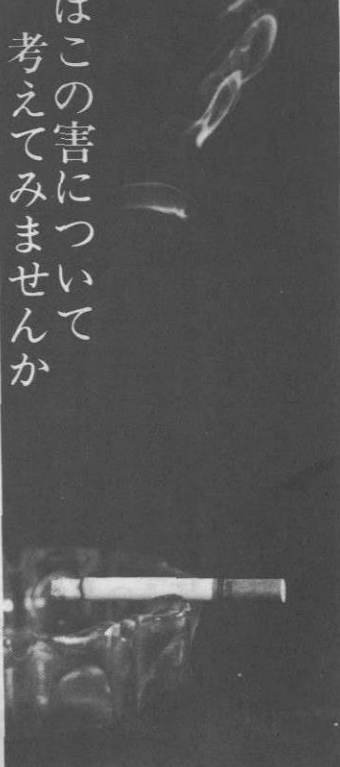 はこの害について
考えてみませんか